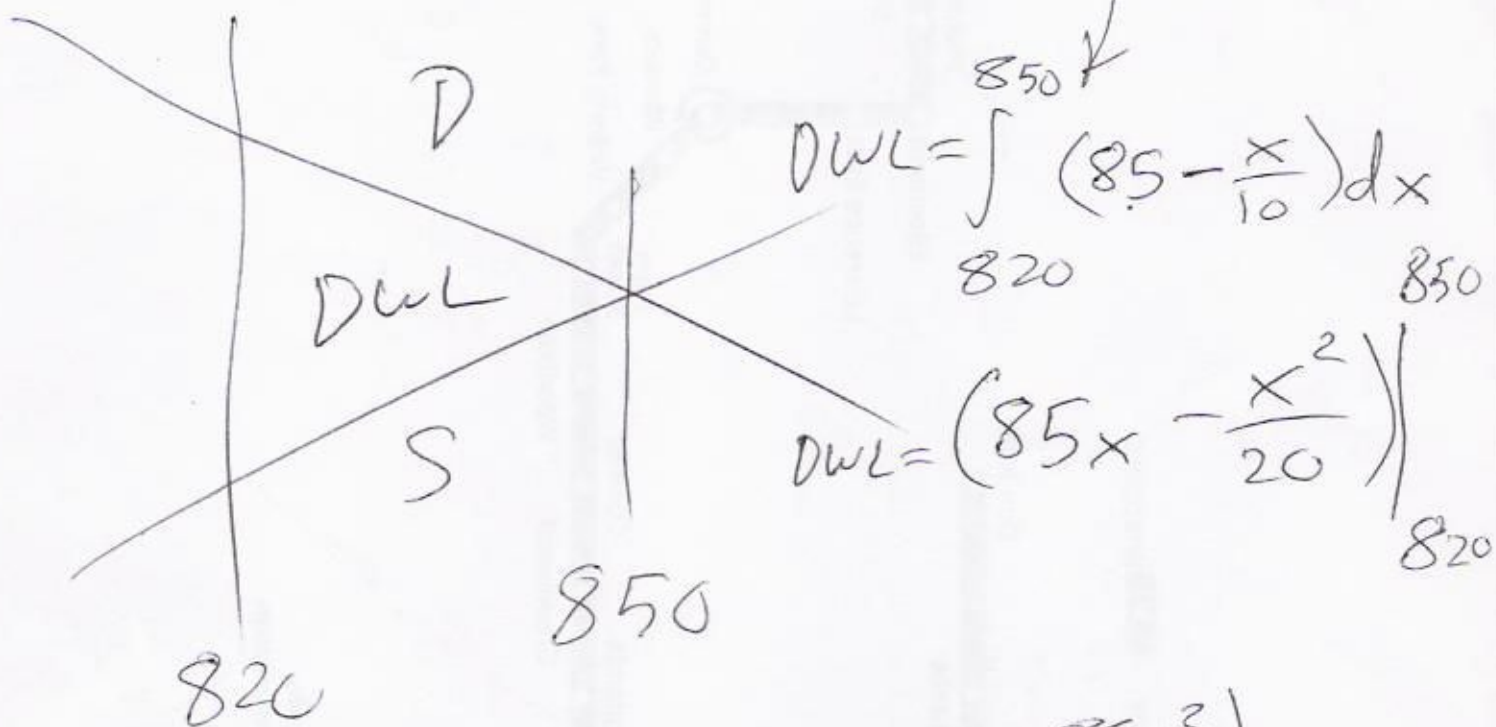 D
DWL
S
820
850
DWL = ∫₈₂₀⁸⁵⁰ (85 - x/10) dx
DWL = (85x - x²/20) |₈₂₀⁸⁵⁰